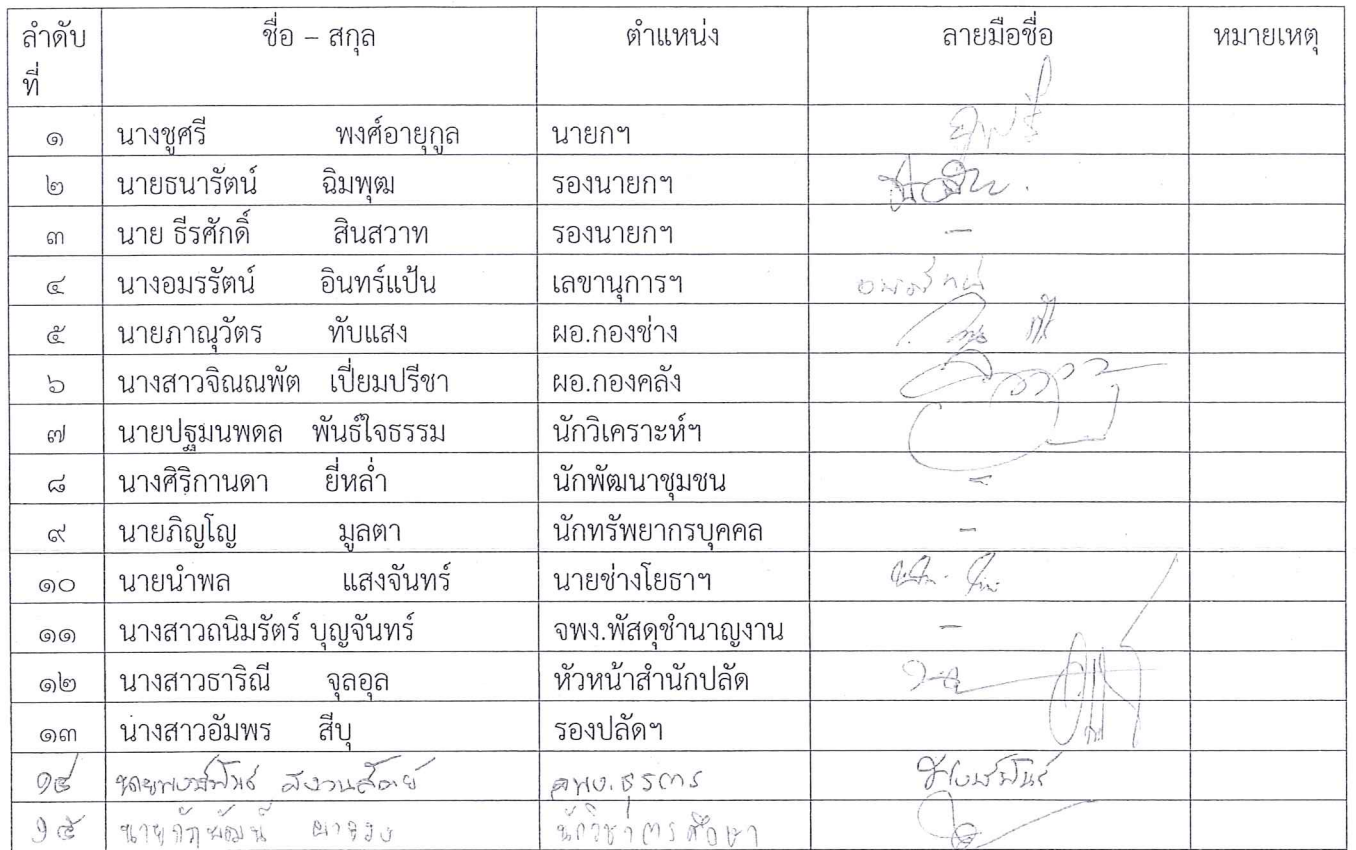 ลำดับที่ ชื่อ – สกุล ตำแหน่ง ลายมือชื่อ หมายเหตุ
๑ นางชูศรี พงศ์อายุกูล นายกฯ
๒ นายธนารัตน์ ฉิมพุฒ รองนายกฯ
๓ นาย ธีรศักดิ์ สินสวาท รองนายกฯ -
๔ นางอมรรัตน์ อินทร์แป้น เลขานุการฯ อมรรัตน์
๕ นายภาณุวัตร ทับแสง ผอ.กองช่าง
๖ นางสาวจิณณพัต เปี่ยมปรีชา ผอ.กองคลัง
๗ นายปฐมนพดล พันธ์ใจธรรม นักวิเคราะห์ฯ
๘ นางศิริกานดา ยี่หล่ำ นักพัฒนาชุมชน -
๙ นายภิญโญ มูลตา นักทรัพยากรบุคคล -
๑๐ นายนำพล แสงจันทร์ นายช่างโยธาฯ
๑๑ นางสาวถนิมรัตร์ บุญจันทร์ จพง.พัสดุชำนาญงาน -
๑๒ นางสาวธาริณี จุลอุล หัวหน้าสำนักปลัด
๑๓ นางสาวอัมพร สีบุ รองปลัดฯ
๑๔ จพง.ธุรการ
๑๕ นักวิชาการศึกษา